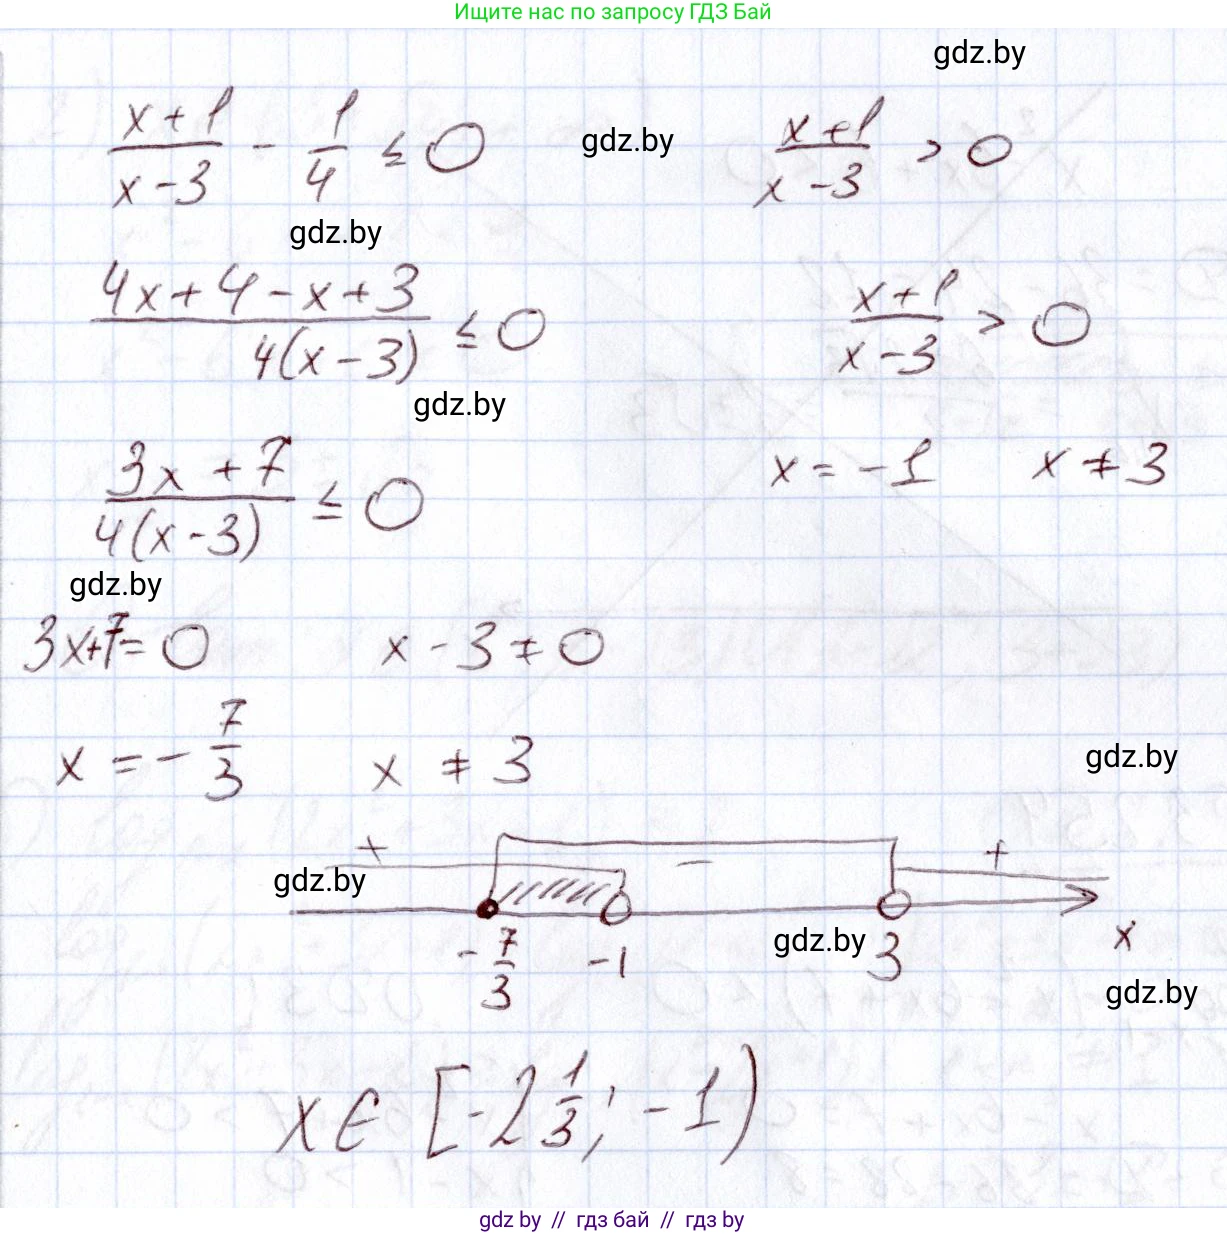 Ищите нас по запросу ГДЗ Бай
gdz.by
(x+1)/(x-3) - 1/4 ≤ 0
gdz.by
(x+1)/(x-3) > 0
gdz.by
(4x+4-x+3)/(4(x-3)) ≤ 0
(x+1)/(x-3) > 0
gdz.by
(3x+7)/(4(x-3)) ≤ 0
x = -1 x ≠ 3
gdz.by
3x+7=0 x-3≠0
x = -7/3 x ≠ 3
gdz.by
+ - +
gdz.by
-7/3 -1 gdz.by 3 x
gdz.by
x ∈ [-2 1/3; -1)
gdz.by // гдз бай // gdz.by